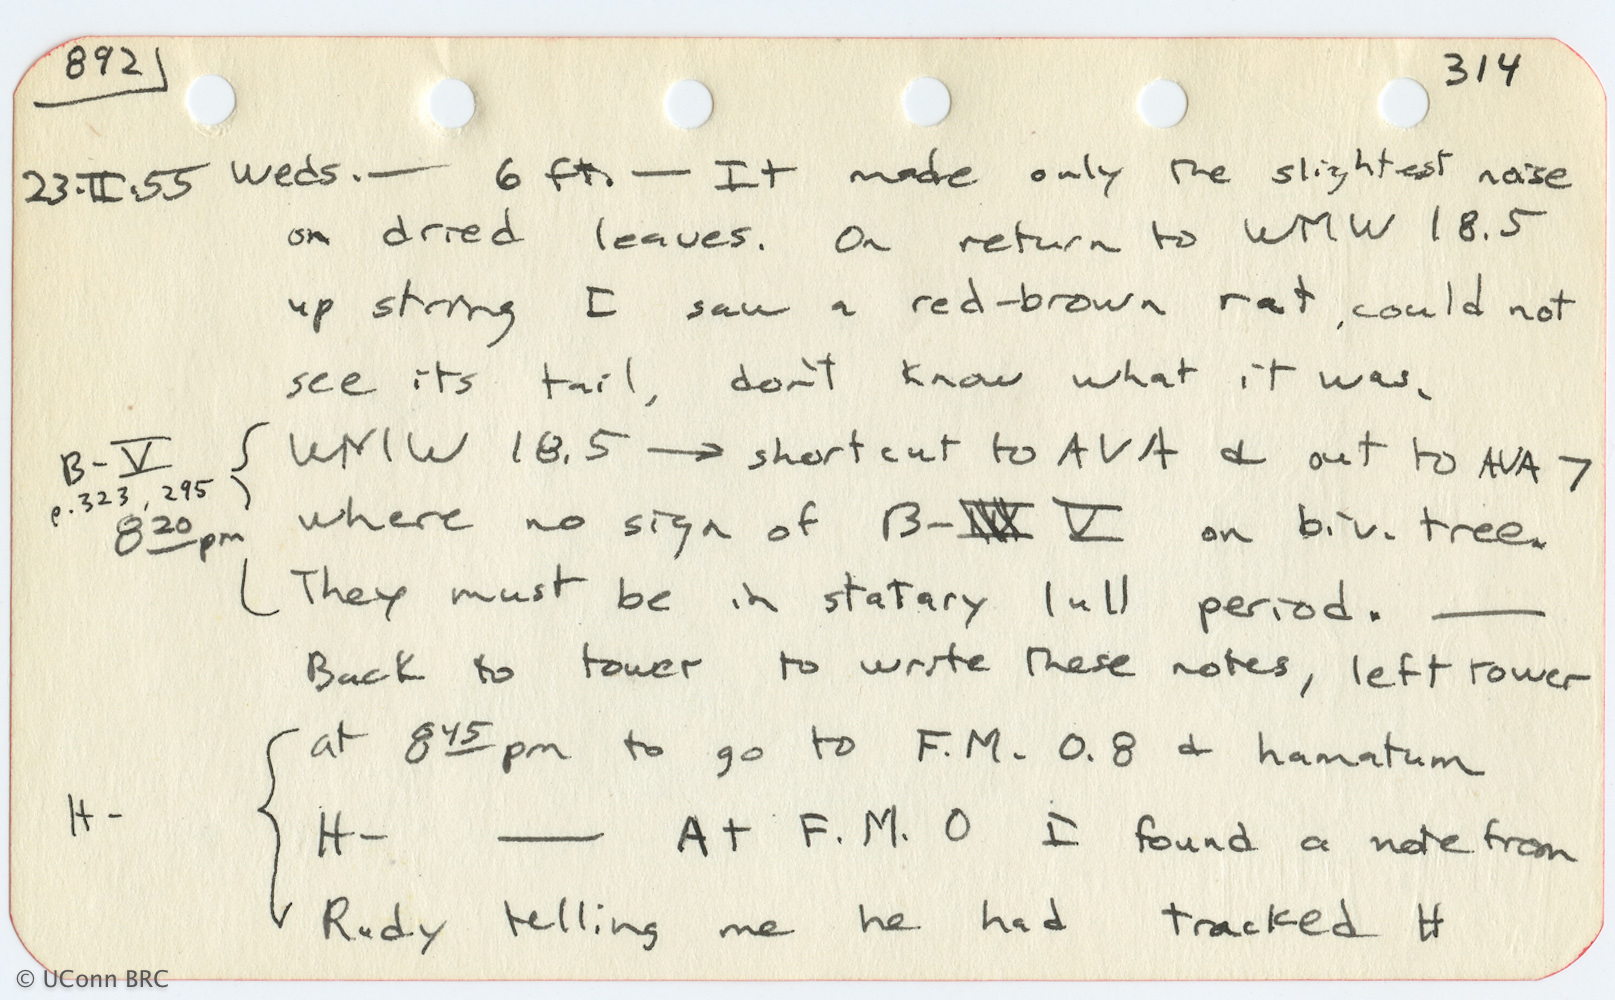 892
314
23.II.55 Weds. — 6 ft. — It made only the slightest noise
on dried leaves. On return to WMW 18.5
up string I saw a red-brown rat, could not
see its tail, don't know what it was.
B-V { WMW 18.5 → shortcut to AVA & out to AVA 7
p.323, 295
8 20 pm where no sign of B- V on biv. tree.
They must be in statary lull period. —
Back to tower to write these notes, left tower
at 8 45 pm to go to F.M. 0.8 & hamatum
H - { H - — At F.M. 0 I found a note from
Rudy telling me he had tracked H
© UConn BRC